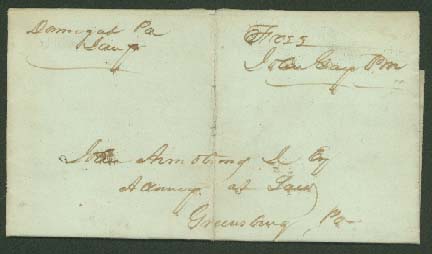 Donegal Pa
Free
John Gay Pm
John Armstrong Jr Esq
Attorney at Law
Greensburg Pa